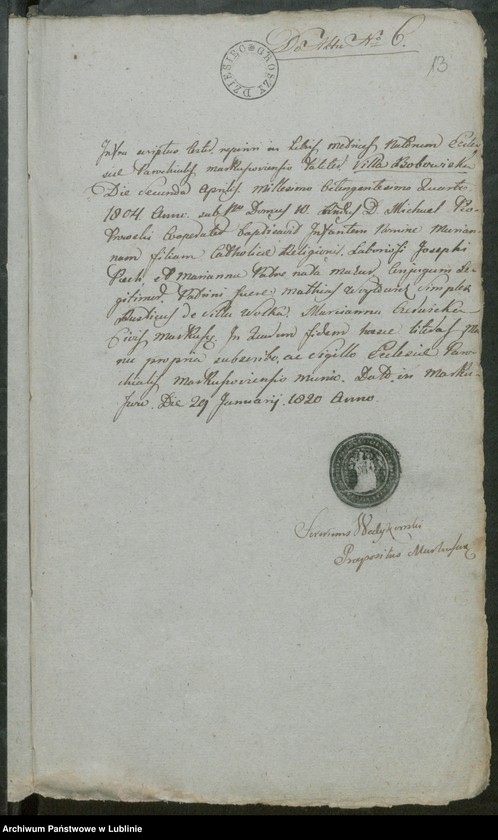 Do Aktu No 6.
13
DZIESIĘC GROSZY
Infra scriptus testor, reperiri in Libris Metrices Natorum Eccle-
siæ Parochialis Markusoviensis Taliter Villa Bobowiska
Die Secunda Aprilis Millesimo Octengentesimo Quarto
1804 Anno. sub Nro Domus 10. D. Michael
Cooperator baptisavit Infantem Nomine Marian-
nam filiam Catholicæ Religionis, Laboriosi Josephi
Pięch, et Marianna nata Mazur, Conjugum Le-
gitimor. Patrini fuere Mathias Woydowicz Simplex
Rusticus de Villa Wolka. Marianna
Civis Markusz. In Quorum fidem hasce literas Ma-
nu propria subscribo, ac Sigillo Ecclesiæ Paro-
chialis Markusoviensis munio. Datt. in Marku-
szow. Die 29 Januarij 1820 Anno.
Severinus Wedykowski
Præpositus Markusz
Archiwum Państwowe w Lublinie